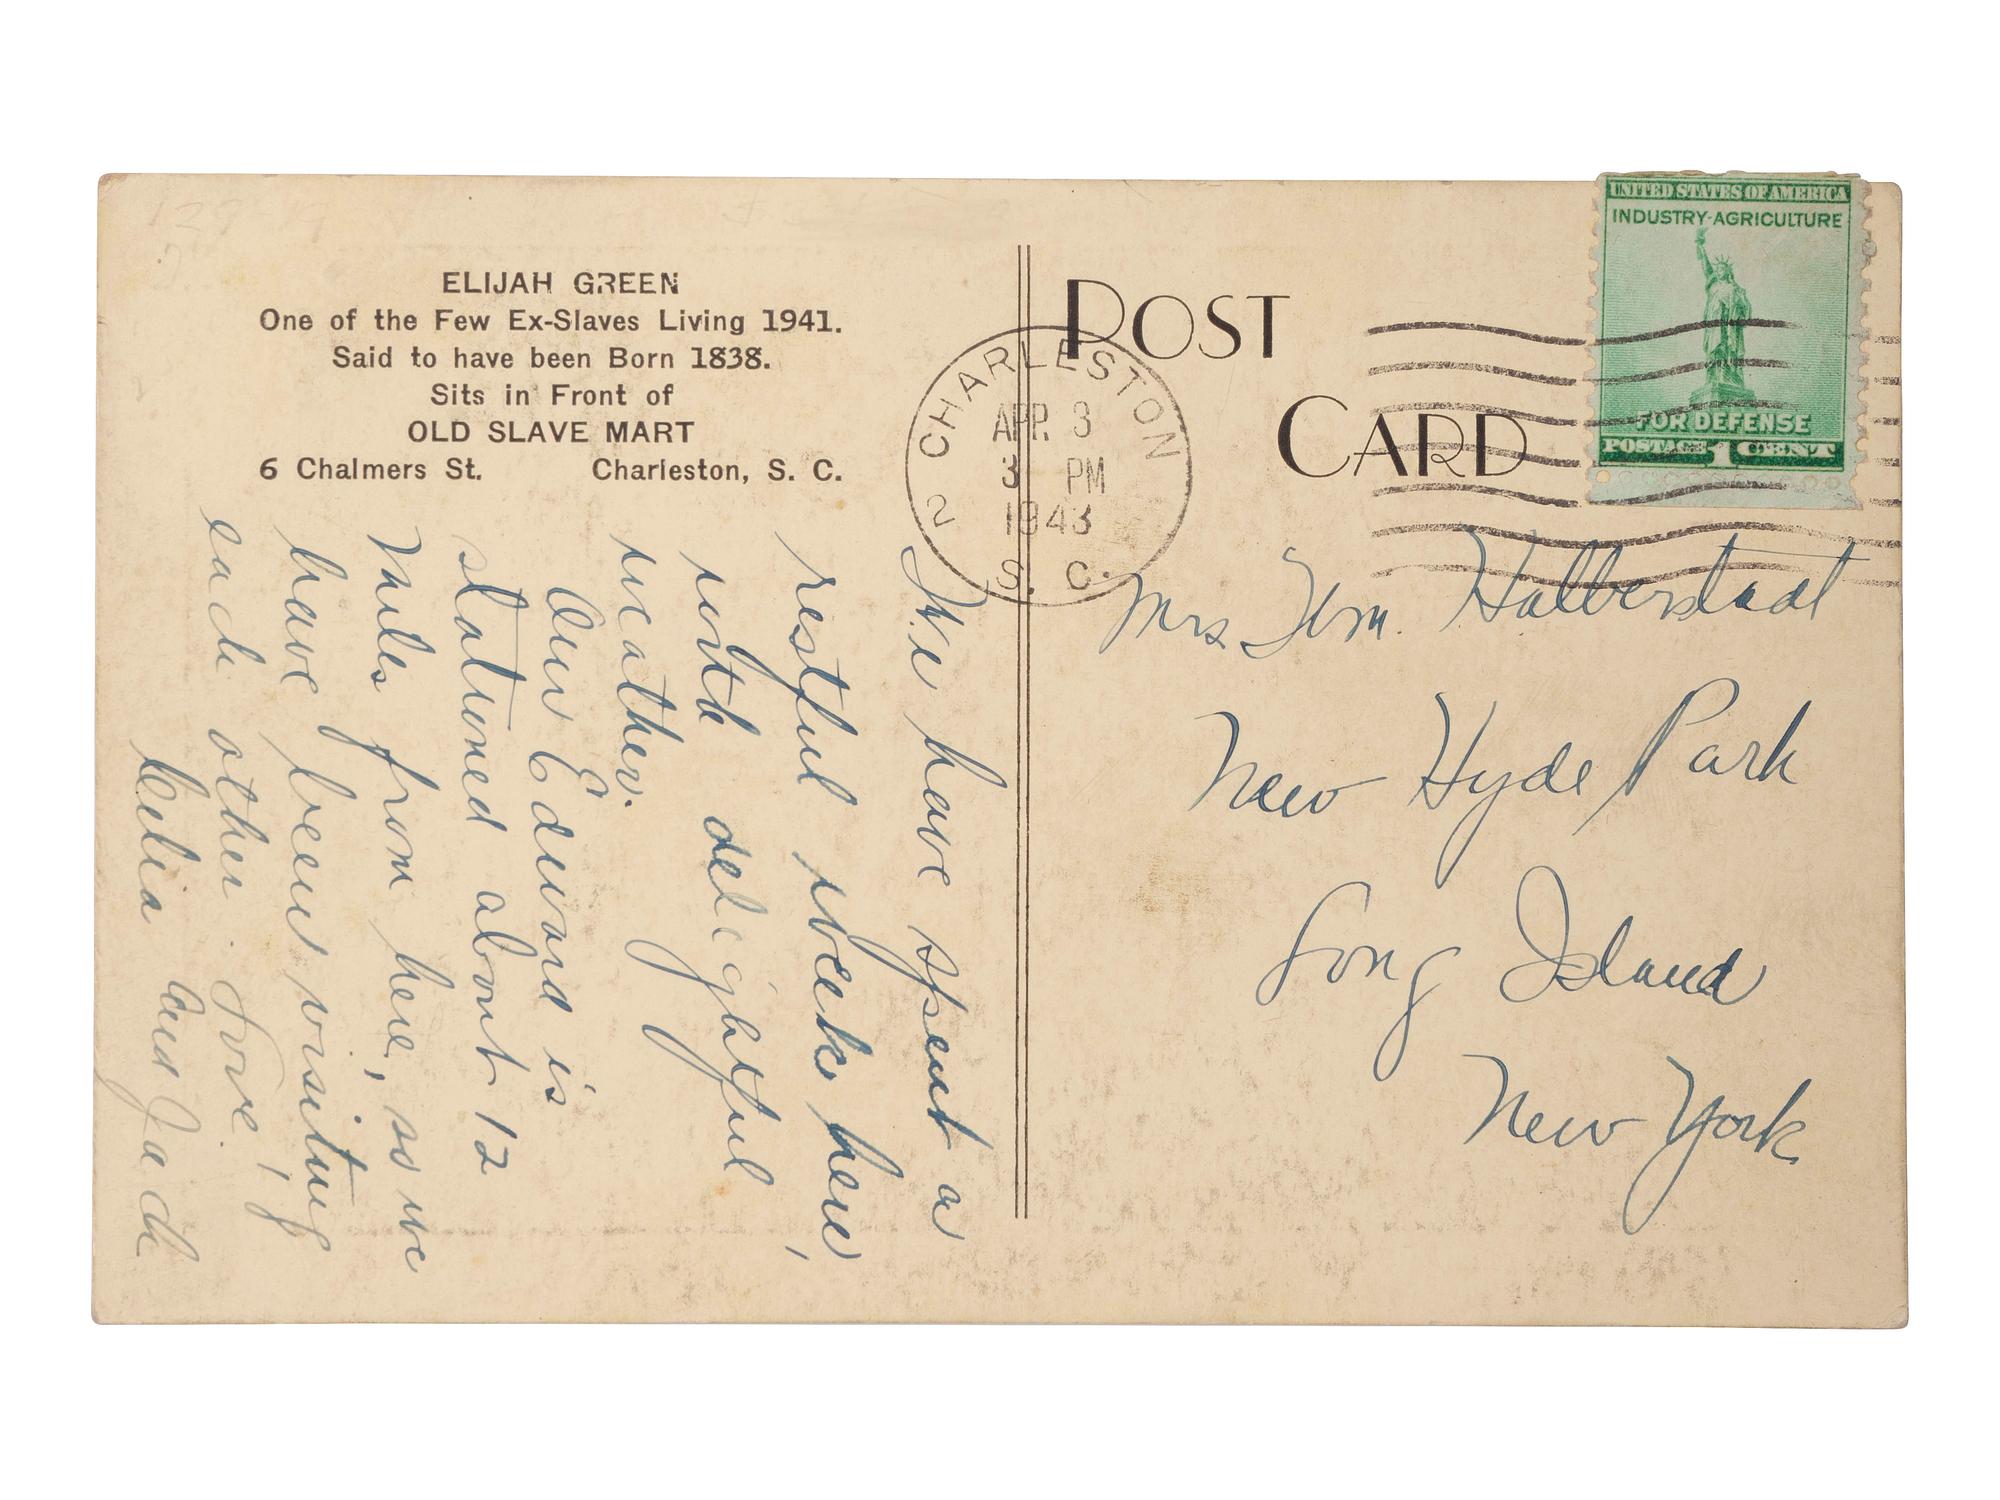 ELIJAH GREEN
One of the Few Ex-Slaves Living 1941.
Said to have been Born 1838.
Sits in Front of
OLD SLAVE MART
6 Chalmers St. Charleston, S. C.
We have spent a
restful week here,
with delightful
weather.
Our Edward is
stationed about 12
miles from here, so we
have been visiting
each other. Love,
Celia and Jack
POST
CARD
CHARLESTON
APR. 3
3 PM
1943
2 S. C.
UNITED STATES OF AMERICA
INDUSTRY-AGRICULTURE
FOR DEFENSE
POSTAGE 1 CENT
Mrs Wm. Halberstadt
New Hyde Park
Long Island
New York